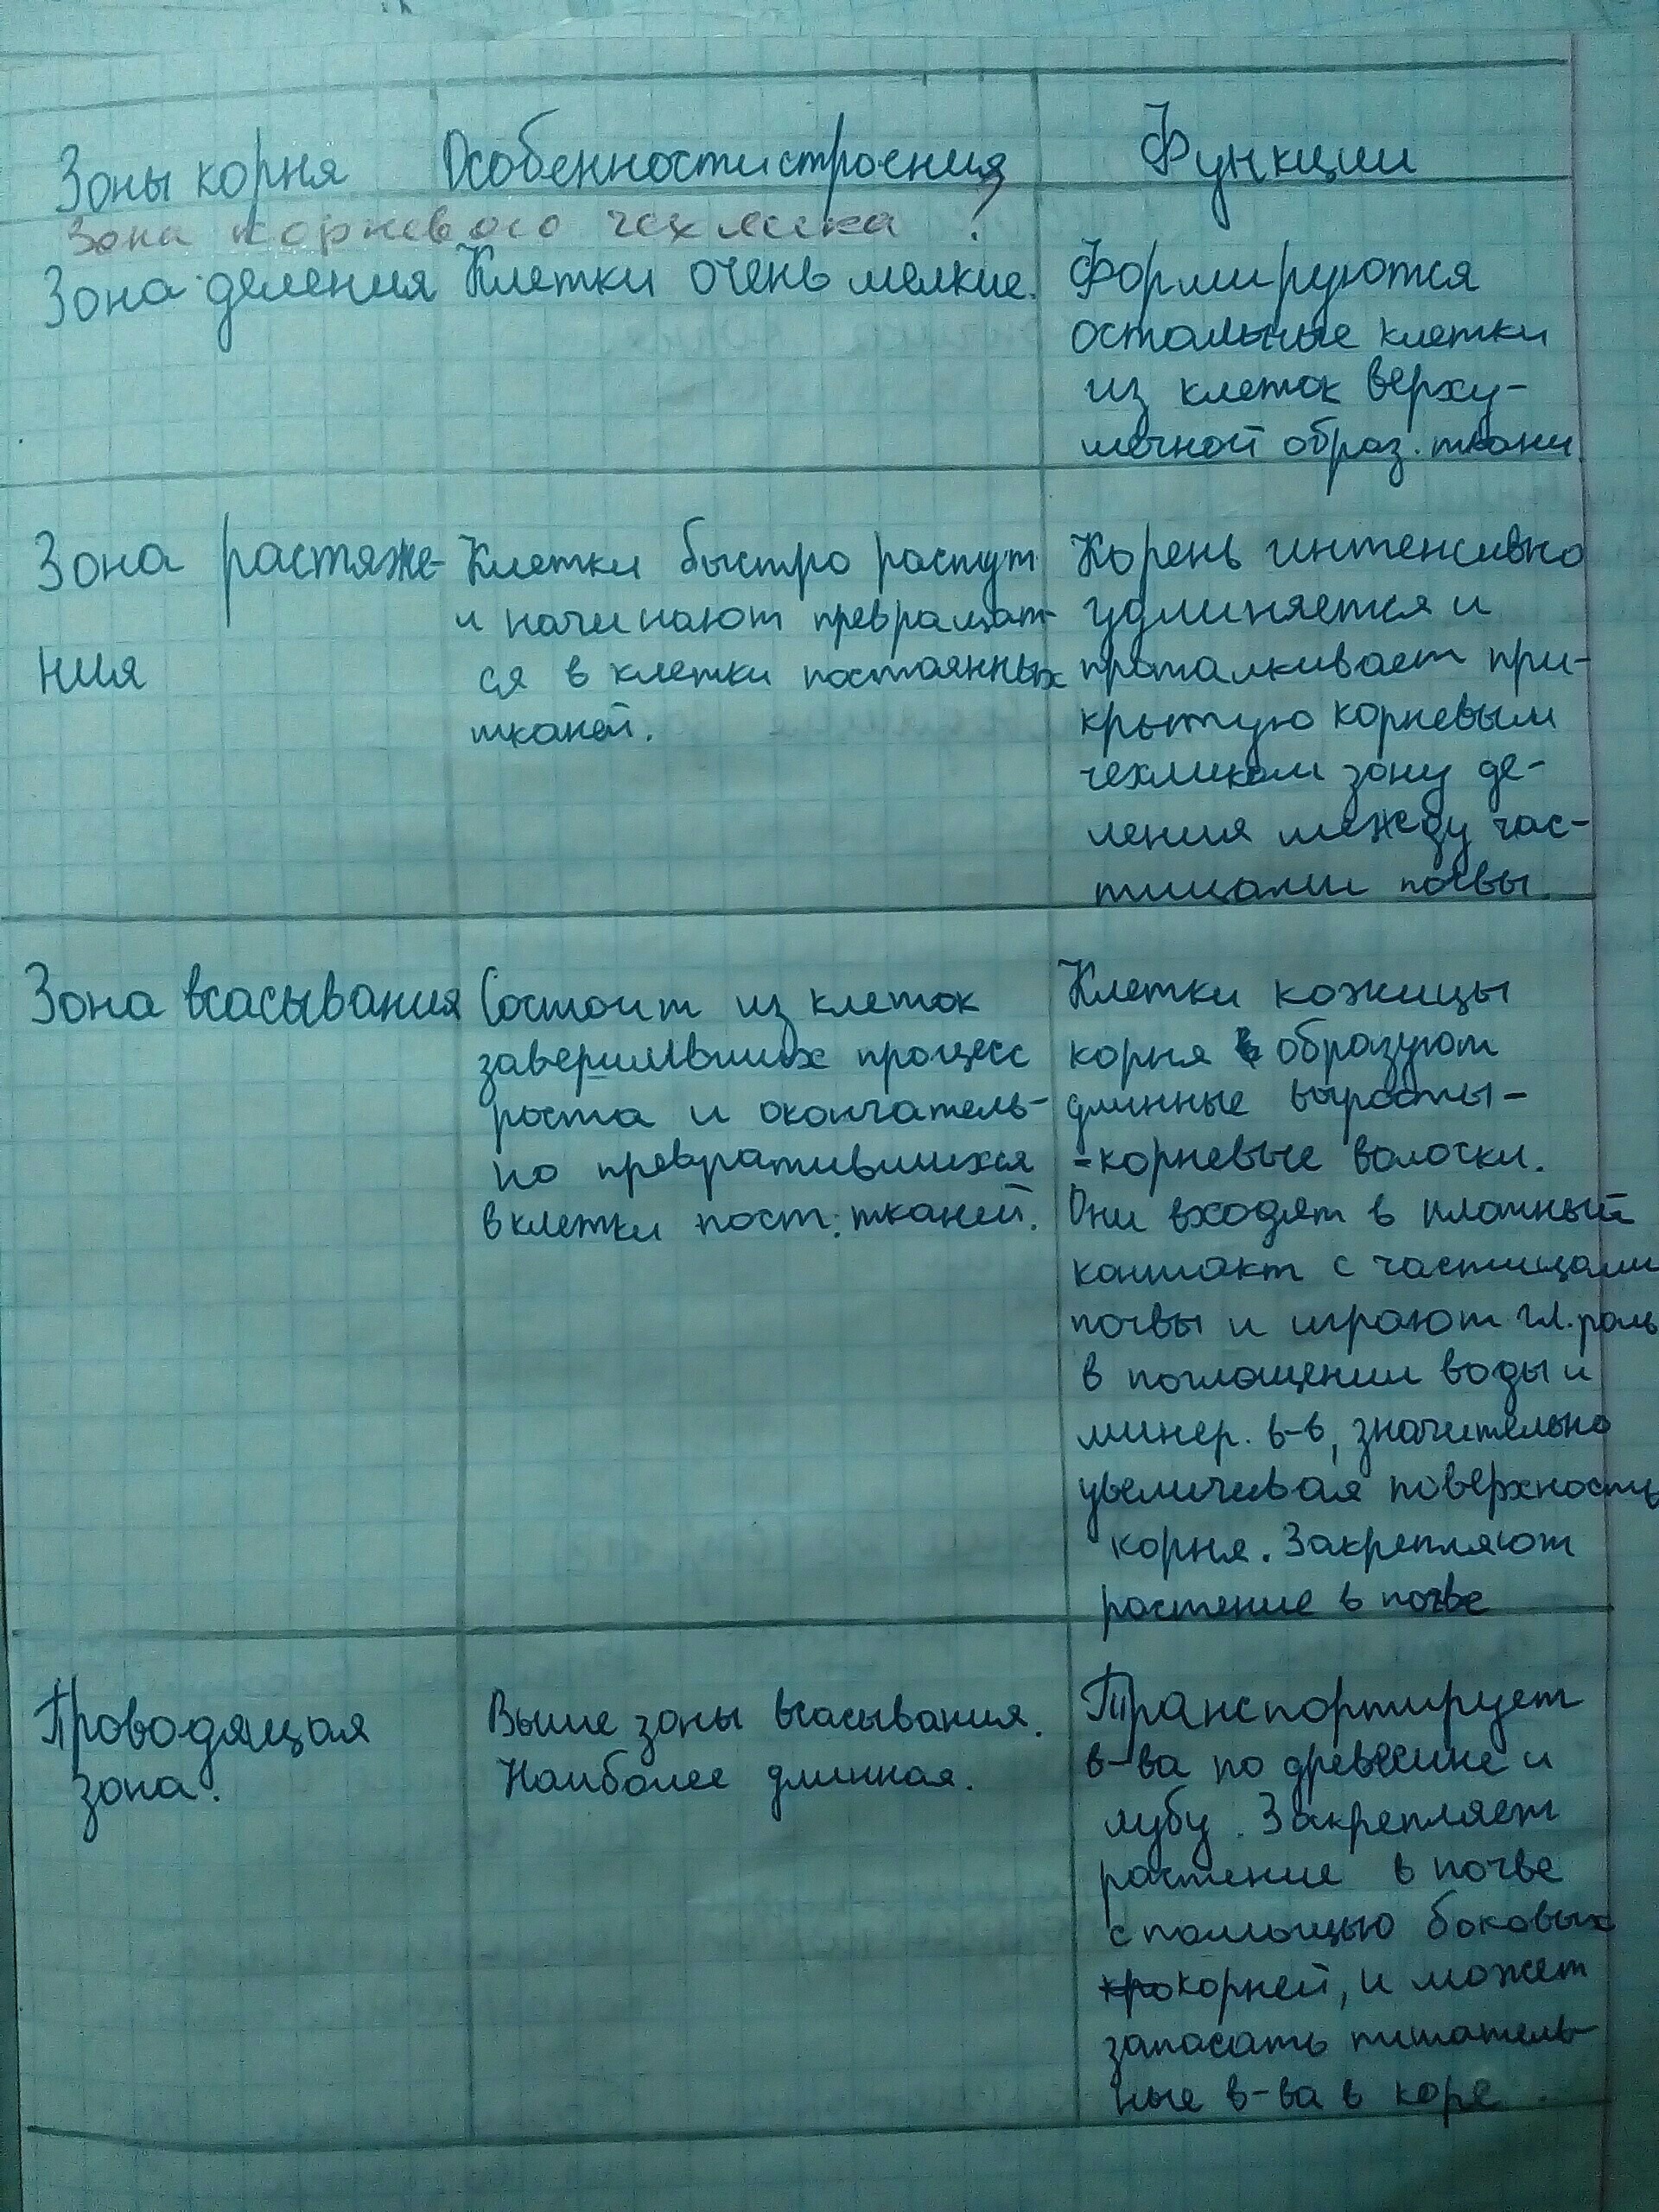 Зоны корня Особенности строения Функции
Зона корневого чехлика ?
Зона деления Клетки очень мелкие. Формируются
остальные клетки
из клеток верху-
шечной образ. ткани
Зона растяже- Клетки быстро растут Корень интенсивно
и начинают превращат- удлиняется и
ния ся в клетки постоянных проталкивает при-
тканей. крытую корневым
чехликом зону де-
ления между час-
тицами почвы.
Зона всасывания Состоит из клеток Клетки кожицы
завершивших процесс корня образуют
роста и окончатель- длинные выросты-
но превратившихся -корневые волоски.
в клетки пост. тканей. Они входят в плотный
контакт с частицами
почвы и играют гл. роль
в поглощении воды и
минер. в-в, значительно
увеличивая поверхность
корня. Закрепляют
растение в почве
Проводящая Выше зоны всасывания. Транспортирует
зона. Наиболее длинная. в-ва по древесине и
лубу. Закрепляет
растение в почве
с помощью боковых
корней, и может
запасать питатель-
ные в-ва в коре.